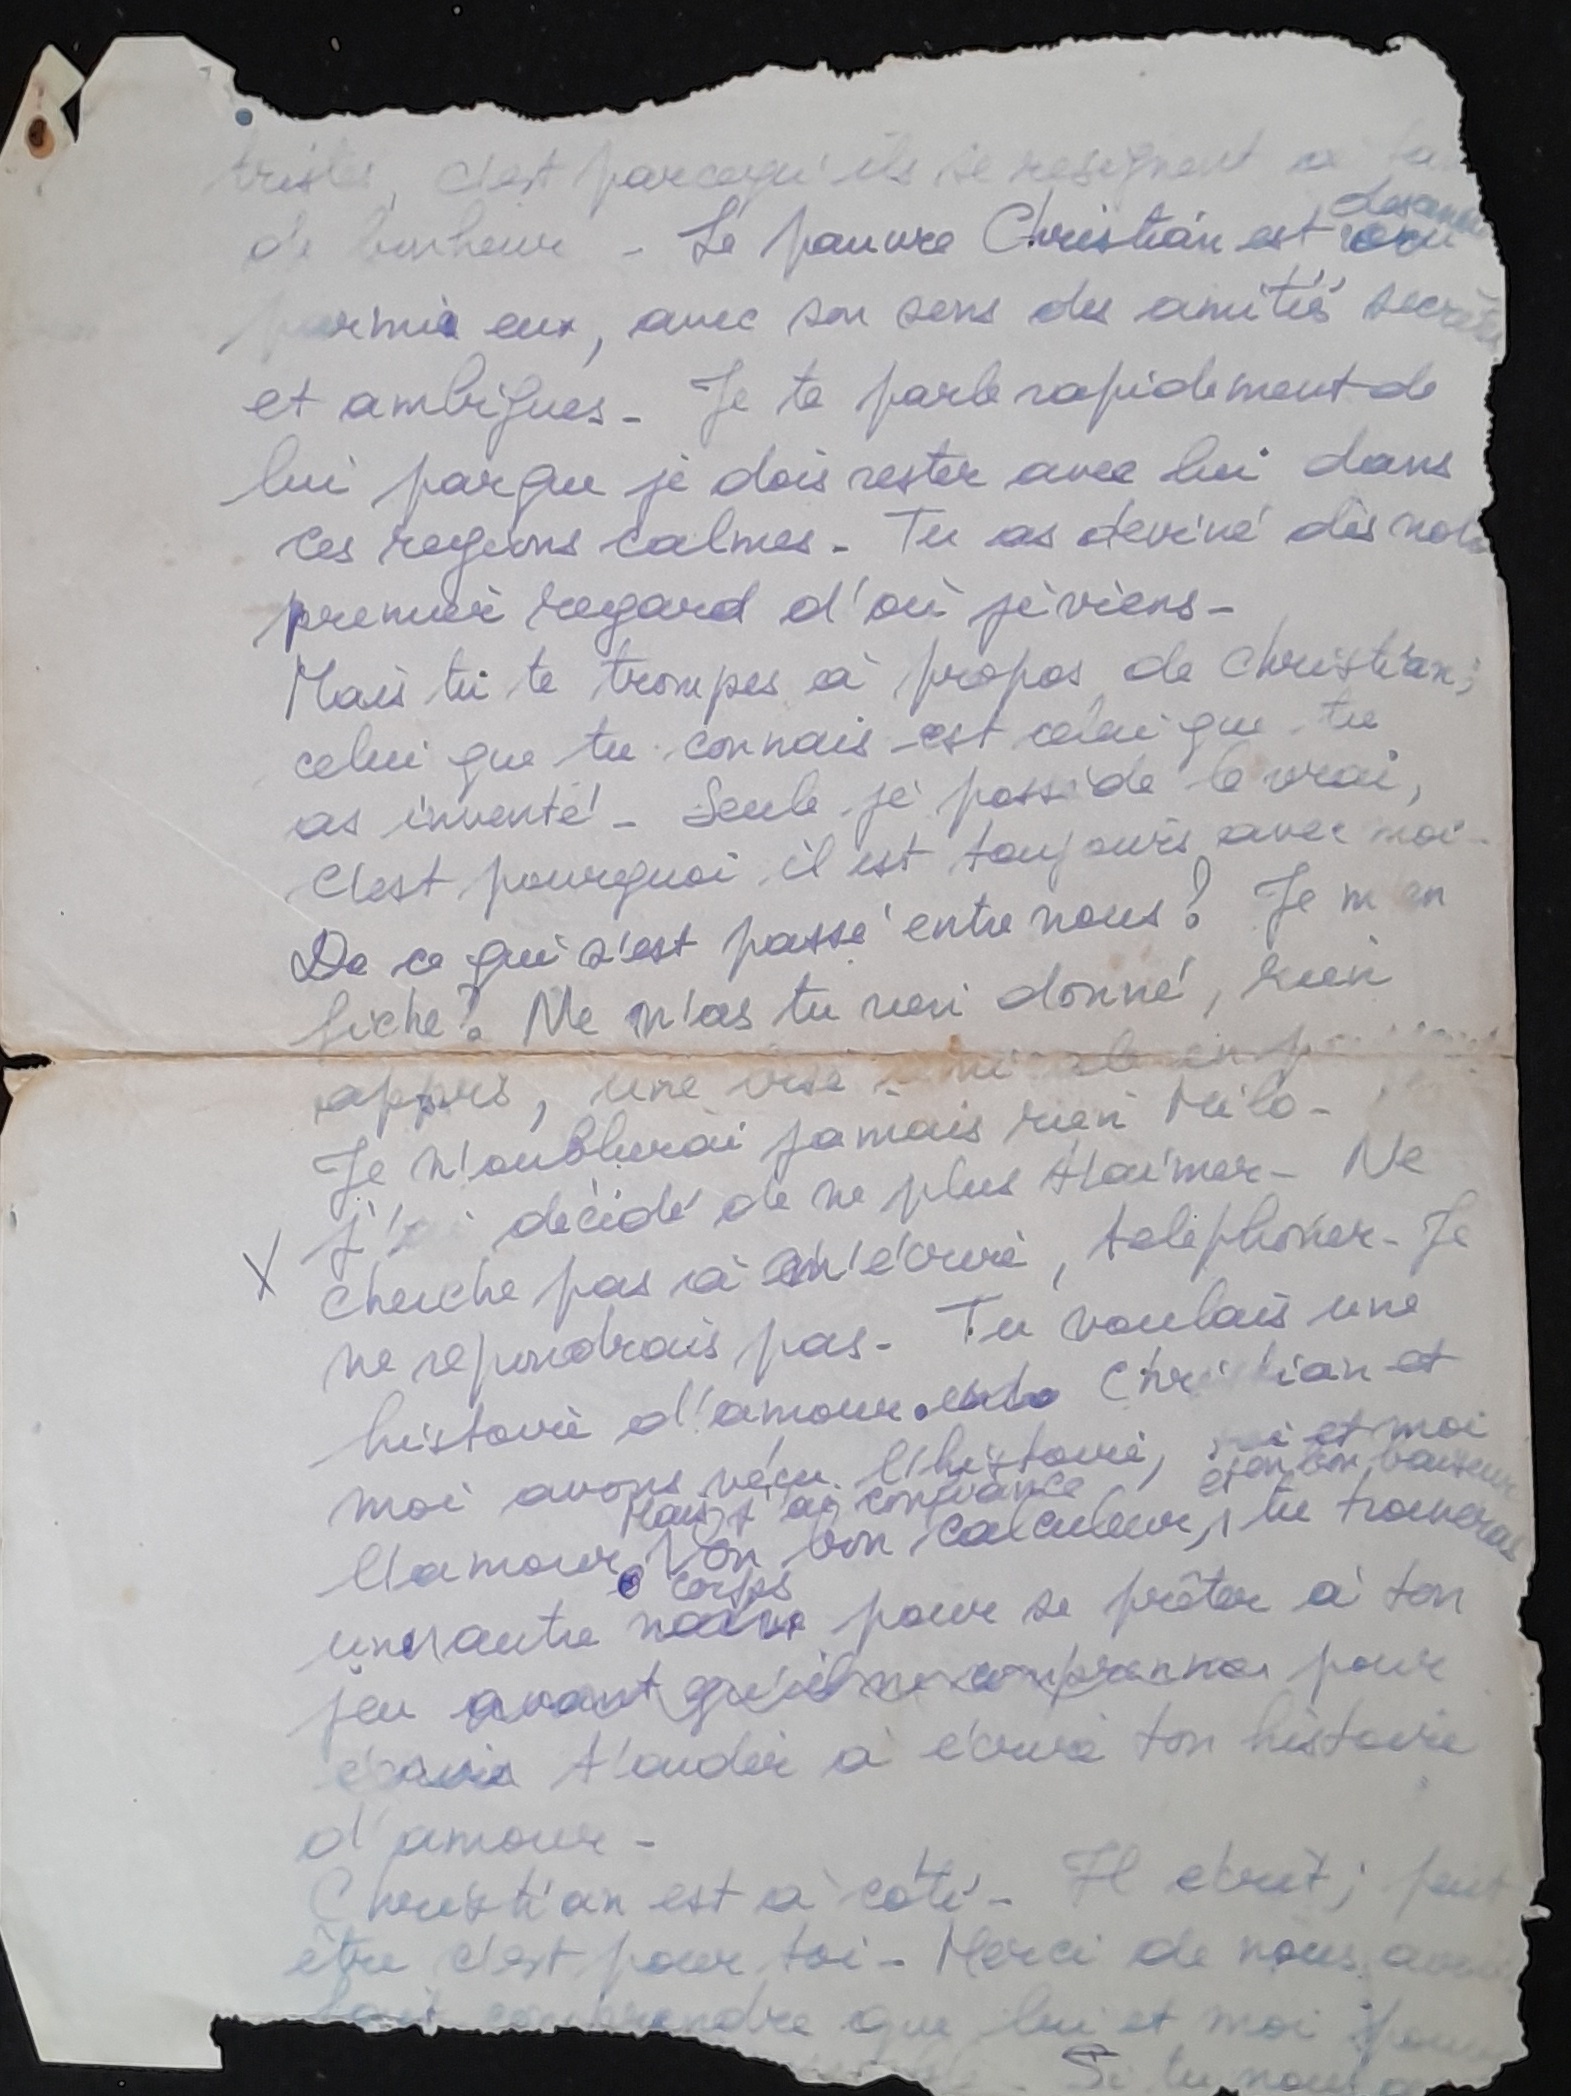 tristes, c'est parcequ'ils se resignent à
de bonheur - Le pauvre Christian est
parmis eux, avec son sens des amitiés secrètes
et ambigues - Je te parle rapidement de
lui parque je dois rester avec lui dans
ces regions calmes - Tu as deviné dès
premier regard d'où je viens -
Mais tu te trompes à propos de Christian;
celui que tu connais est celui que tu
as inventé - Seule je possède le vrai,
C'est pourquoi il est toujours avec moi -
De ce qui s'est passé entre nous? Je m'en
fiche! Ne m'as tu rien donné, rien
appris, une
Je n'oublierai jamais rien Milo -
J'ai décidé de ne plus t'aimer - Ne
X cherche pas à m'écrire, telephoner - Je
ne repondrais pas - Tu voulais une
histoire d'amour. Christian et
moi avons vécu l'histoire, toi et moi
Mais j'ai confiance et en bon baiseur
l'amour. En bon calculeur, tu trouveras
corps
un autre naïve pour se prêter à ton
jeu avant qu'il ne comprenne pour
écrire t'aider à écrire ton histoire
d'amour -
Christian est à côté - Il ecrit; peut
être c'est pour toi - Merci de nous avoir
fait comprendre que lui et moi
Si tu nous